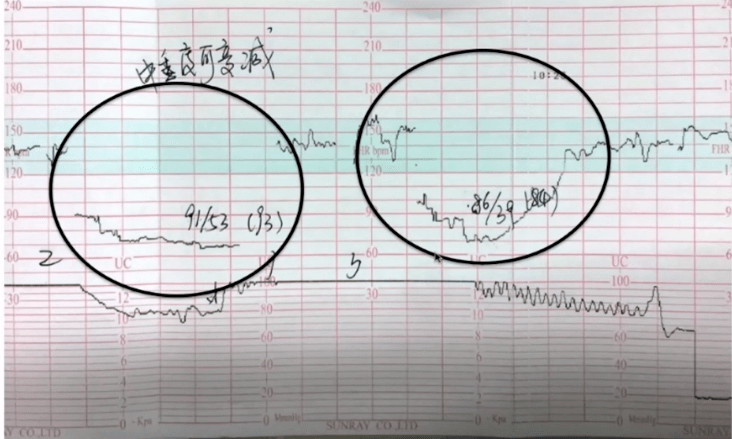 240
240
210
210
中重度可变减
10:2
180
180
150
150
FHR bpm
FHR
120
120
90
90
91/53 (93)
86/39 (84)
60
60
2
5
UC
UC
UC
30
100
30
100
12
12
10
80
10
8
60
8
60
6
6
4
4
2
20
2
20
0
Kpa
0
MmmHg
0
Kpa
0
MmmHg
SUNRAY CO.,LTD
SUNRAY CO.,LTD
SUNRAY